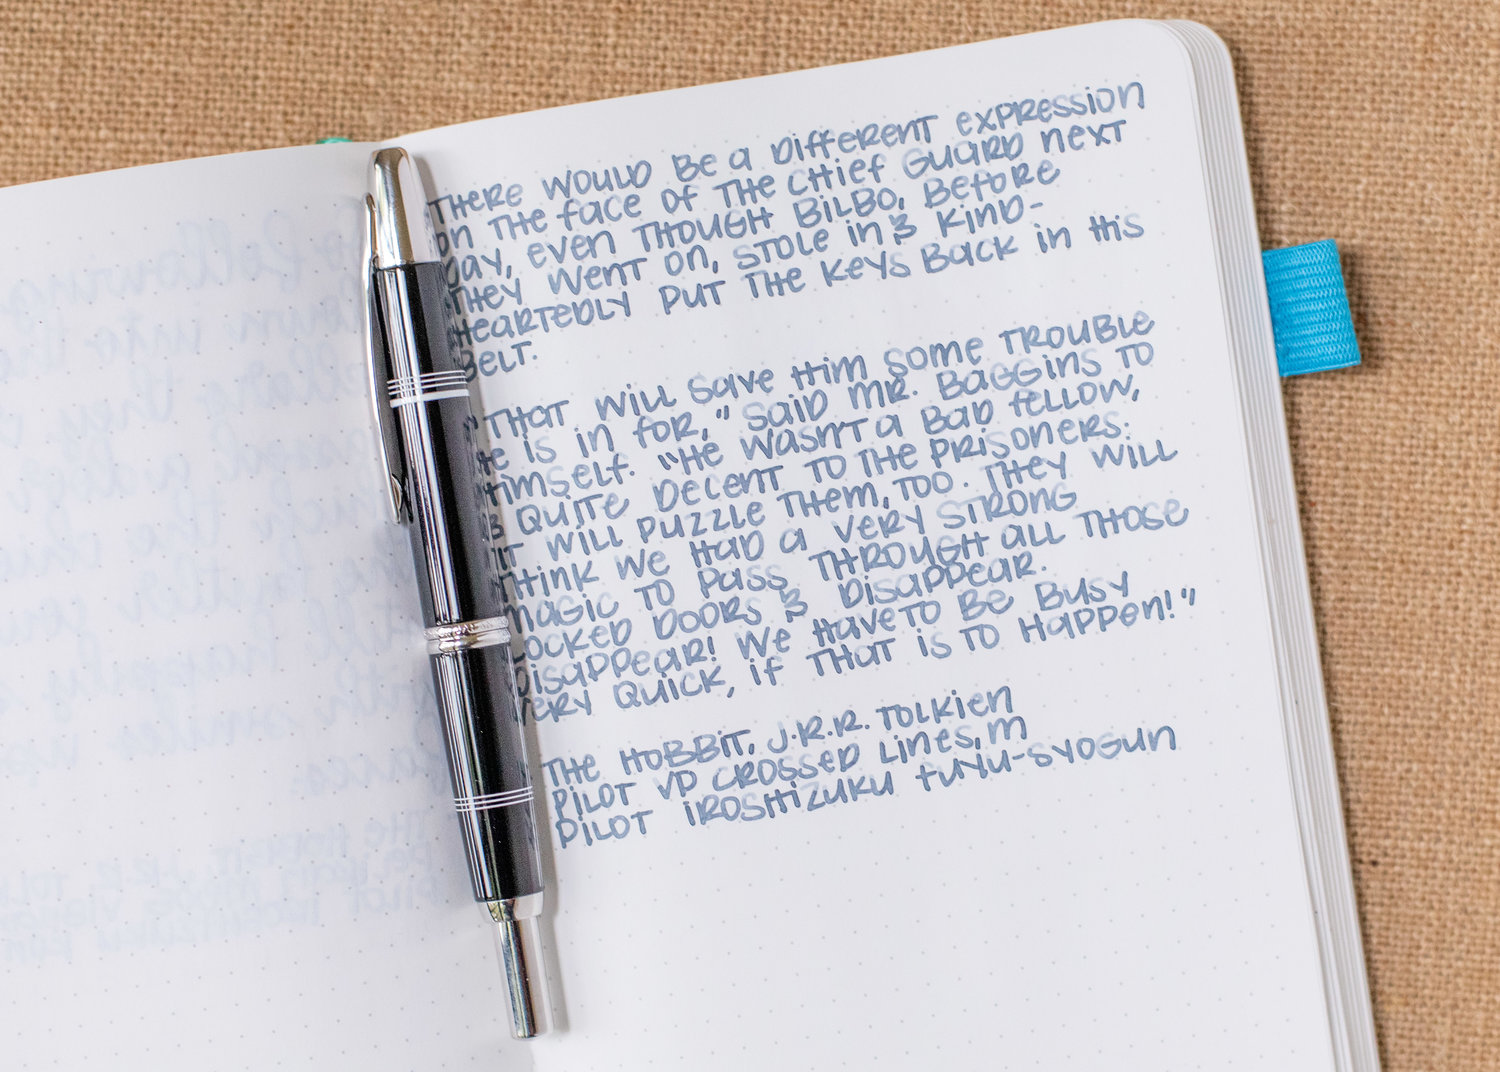 There would be a different expression
on the face of the chief guard next
day, even though Bilbo, before
they went on, stole in & kind-
heartedly put the keys back in his
belt.
"That will save him some trouble
he is in for," said Mr. Baggins to
himself. "He wasn't a bad fellow,
& quite decent to the prisoners.
It will puzzle them, too. They will
think we had a very strong
magic to pass through all those
locked doors & disappear.
Disappear! We have to be busy
very quick, if that is to happen!"
The Hobbit, J.R.R. Tolkien
Pilot VP Crossed Lines, M
Pilot Iroshizuku Fuyu-syogun